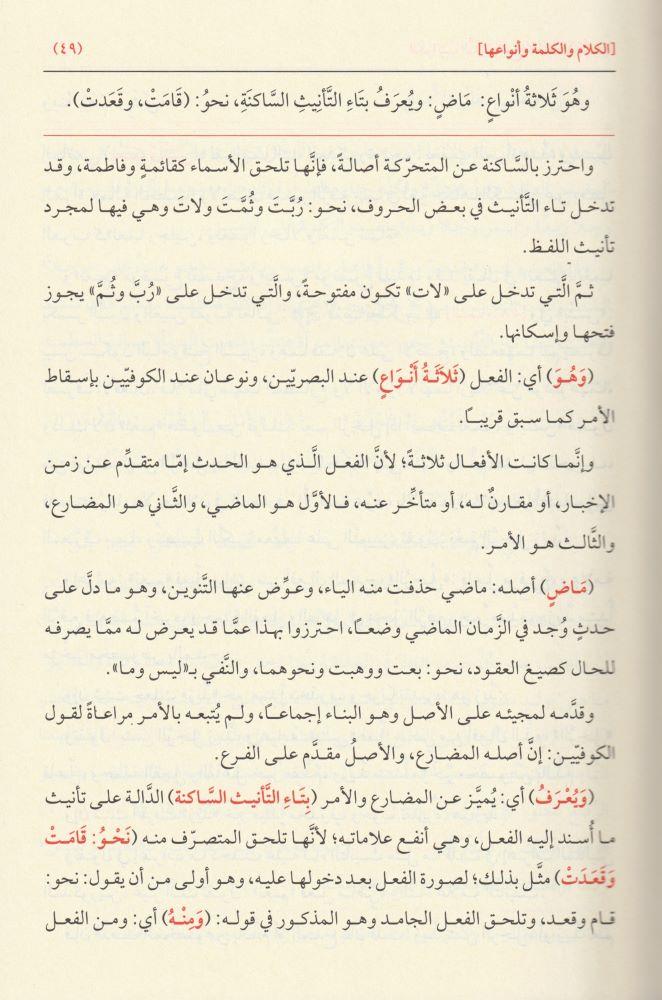 [الكلام والكلمة وأنواعها] (٤٩)
وهُوَ ثَلاثةُ أنْواعٍ: مَاضٍ: ويُعرَفُ بتَاءِ التَّأنِيثِ السَّاكنَةِ، نحوُ: (قَامَتْ، وقَعَدتْ).
واحترز بالسَّاكنة عن المتحرّكة أصالةً، فإنَّها تلحق الأسماء كقائمةٍ وفاطمة، وقد
تدخل تاء التَّأنيث في بعض الحروف، نحو: رُبَّتَ وثُمَّتَ ولاتَ وهي فيها لمجرد
تأنيث اللفظ.
ثمَّ الَّتي تدخل على «لات» تكون مفتوحةً، والَّتي تدخل على «رُبَّ وثُمَّ» يجوز
فتحها وإسكانها.
(وَهُوَ) أي: الفعل (ثَلَاثَةُ أَنْوَاعٍ) عند البصريّين، ونوعان عند الكوفيّين بإسقاط
الأمر كما سبق قريبًا.
وإنَّما كانت الأفعال ثلاثةً؛ لأنَّ الفعل الَّذي هو الحدث إمّا متقدِّم عن زمن
الإخبار، أو مقارنٌ له، أو متأخِّر عنه، فالأوَّل هو الماضي، والثَّاني هو المضارع،
والثَّالث هو الأمر.
(مَاضٍ) أصله: ماضي حذفت منه الياء، وعوِّض عنها التَّنوين، وهو ما دلَّ على
حدثٍ وُجد في الزَّمان الماضي وضعًا، احترزوا بهذا عمَّا قد يعرض له ممَّا يصرفه
للحال كصيغ العقود، نحو: بعت ووهبت ونحوهما، والنَّفي بـ«ليس وما».
وقدَّمه لمجيئه على الأصل وهو البناء إجماعًا، ولم يُتبعه بالأمر مراعاةً لقول
الكوفيّين: إنَّ أصله المضارع، والأصلُ مقدَّم على الفرع.
(وَيُعْرَفُ) أي: يُميَّز عن المضارع والأمر (بِتَاءِ التَّأنيث السَّاكنة) الدَّالة على تأنيث
ما أُسند إليه الفعل، وهي أنفع علاماته؛ لأنَّها تلحق المتصرّف منه (نَحْوُ: قَامَتْ
وَقَعَدَتْ) مثَّل بذلك؛ لصورة الفعل بعد دخولها عليه، وهو أولى من أن يقول: نحو:
قام وقعد، وتلحق الفعل الجامد وهو المذكور في قوله: (وَمِنْهُ) أي: ومن الفعل